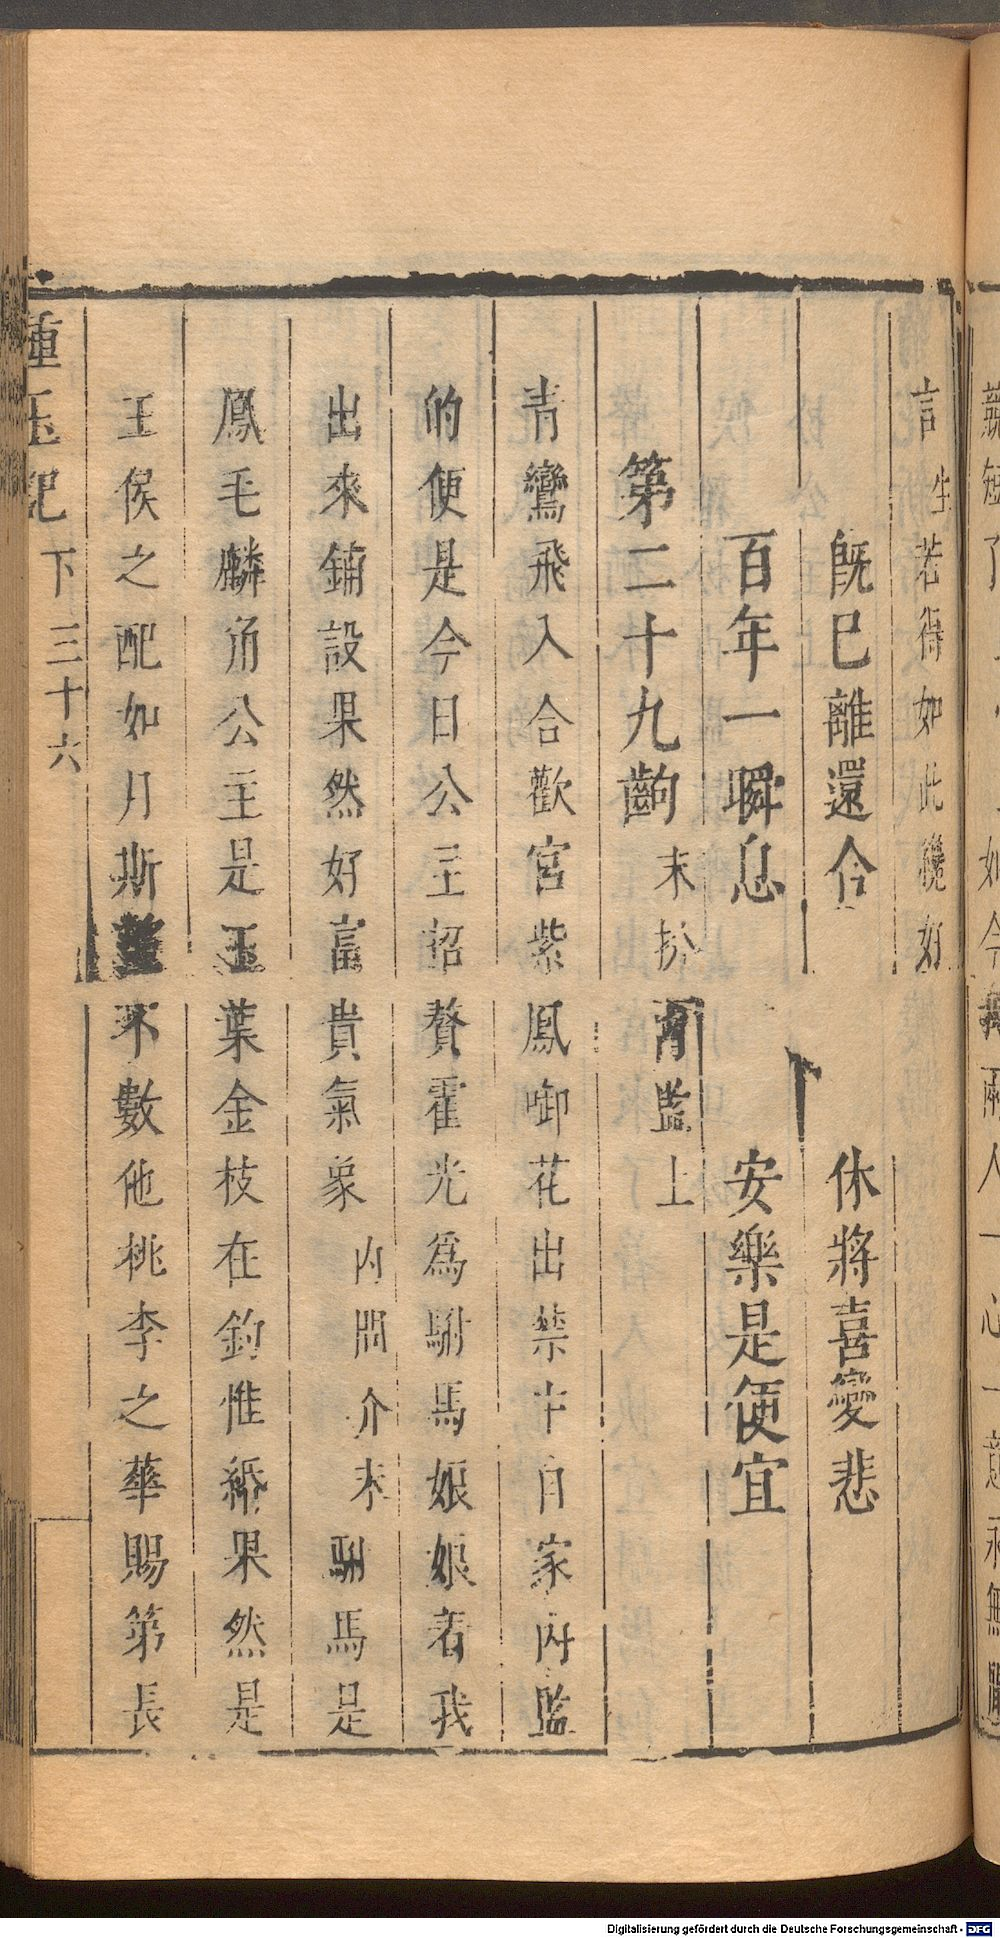 言 生 若得如此纔好
既已離還合 休將喜變悲
百年一瞬息 安樂是便宜
第二十九齣 末扮 監上
青鸞飛入合歡宮紫鳳啣花出禁中自家內監
的便是今日公主招贅霍光為駙馬娘娘着我
出來鋪設果然好富貴氣象 內問介末 駙馬是
鳳毛麟角公主是玉葉金枝在鈞惟緡果然是
王侯之配如月斯 不數他桃李之華賜第長
種玉記 下 三十六
短了
如今我兩人一心一意永無
Digitalisierung gefördert durch die Deutsche Forschungsgemeinschaft - DFG